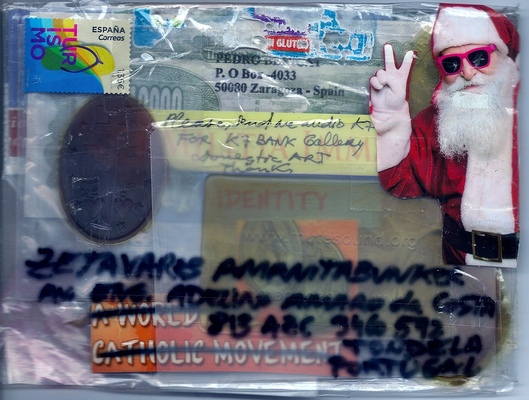 ESPAÑA
Correos
TURISMO
1,35€
SIN GLUTEN
PEDRO
P. O Box -4033
50080 Zaragoza - Spain
Please, send me audio K7
FOR K7 BANK Gallery
domestic ART
Thanks
IDENTITY
ZETAVARES AMANITABUNKER
AV. ENG ADELINO AMARO da COSTA
A WORLD
813 A2C 346 592
CATHOLIC MOVEMENT
TONDELA
PORTUGAL